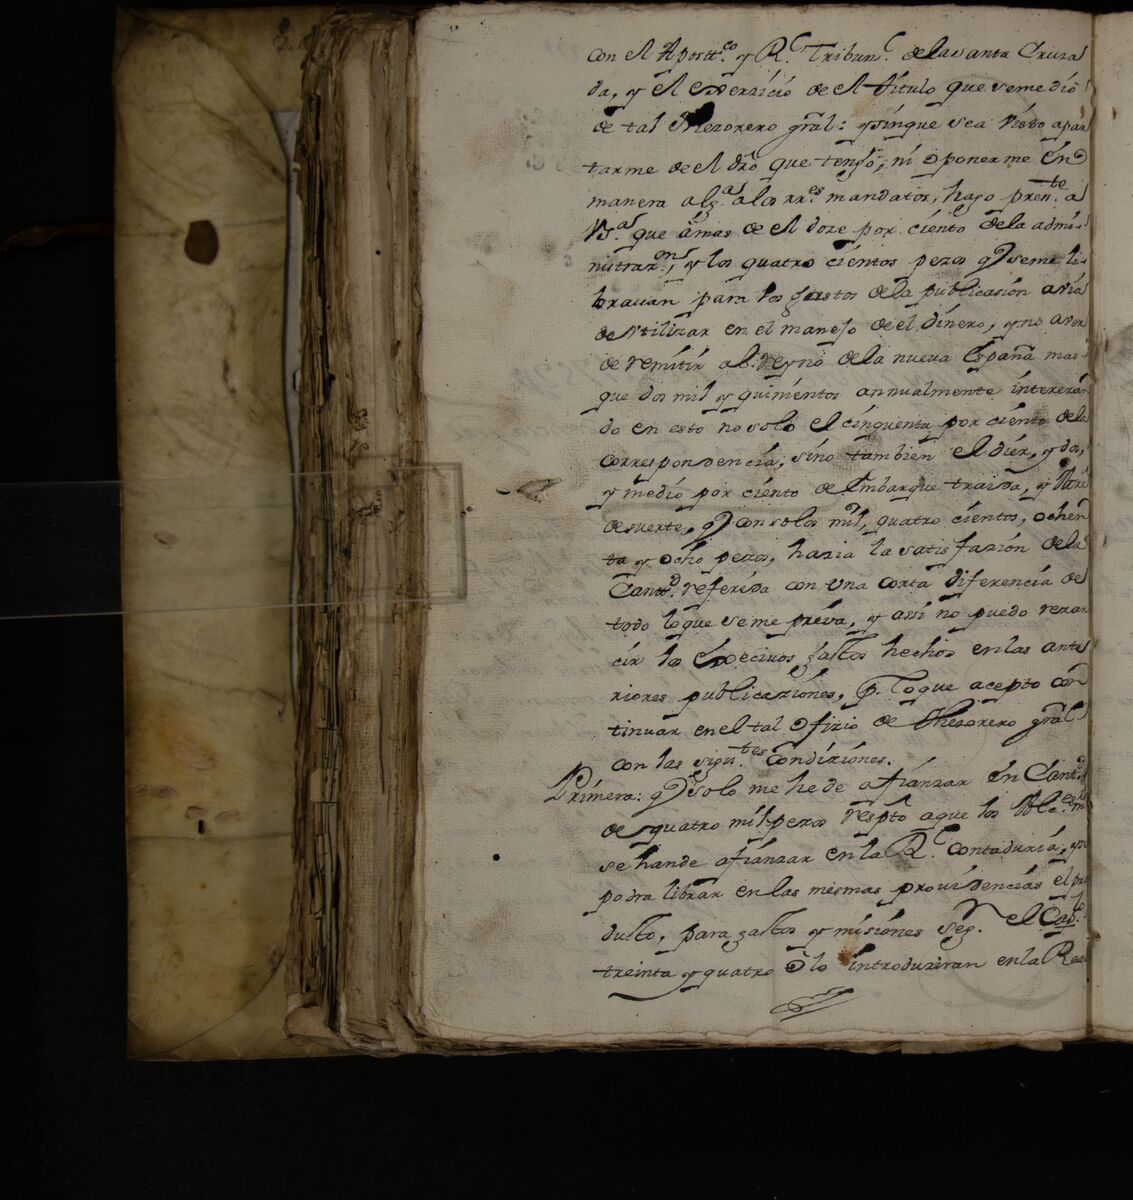 con el Apostt.co y R.l Tribun.l de la santa Cruza
da, y el exerzicio de el titulo que se me dió
de tal Thezorero gral: y sin que sea visto apar
tarme de el dro que tengo, ni oponerme en
manera alg.a a los rr.es mandatos, hago pren.te a
V.s.a que amas de el doze por ciento de la admi-
nistraz.on, y los quatro cientos pezos q se me li-
bravan para los gastos de la publicasión avia
de utilizar en el manejo de el dinero, y no aver
de remitir al reyno de la nueva España mas
que dos mil y quinientos annualmente interezan
do en esto no solo el cinquenta por ciento de la
correspondencia, sino tambien el diez, y dos,
y medio por ciento de Embarque traida, y
de suerte, q con solos mil, quatro cientos, ochen
ta y ocho pezos, hazia la satisfazion de la
Cant.d referida con una corta diferencia de
todo lo que se me preva, y assi no puedo rezar
cir los excecivos gastos hechos en las ante
riores publicaziones, p. lo que acepto con
tinuar en el tal ofizio de Thezorero gral
con las sigu.tes condiziones.
Primera: q solo me he de afianzar en Cant.d
de quatro mil pezos respto a que los
se han de afianzar en la R.l contaduria, y se
podra librar en las mesmas providencias el pro
ducto, para gastos y misiones seg.n el Cap.lo
treinta y quatro o lo introduziran en la Rea